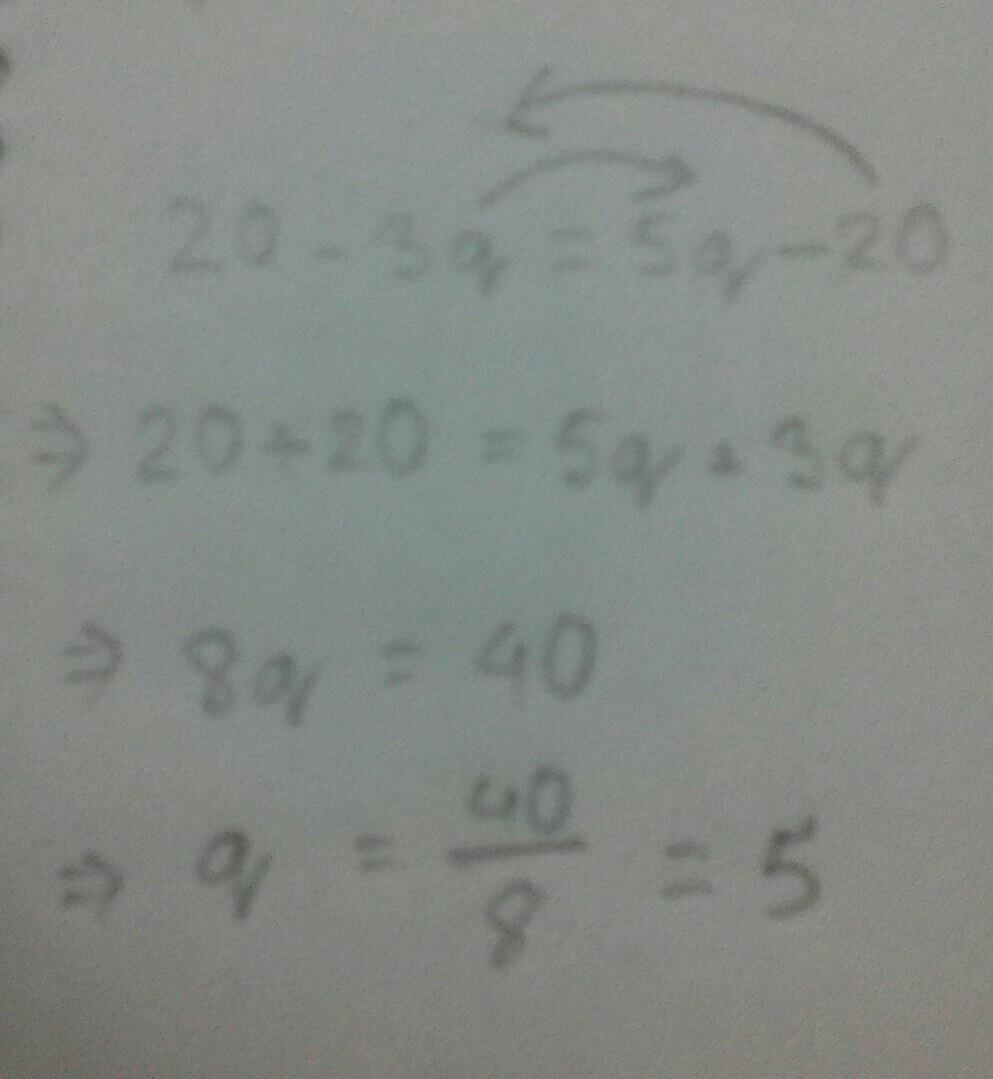 20 - 3q = 5q - 20
⇒ 20 + 20 = 5q + 3q
⇒ 8q = 40
⇒ q = 40/8 = 5